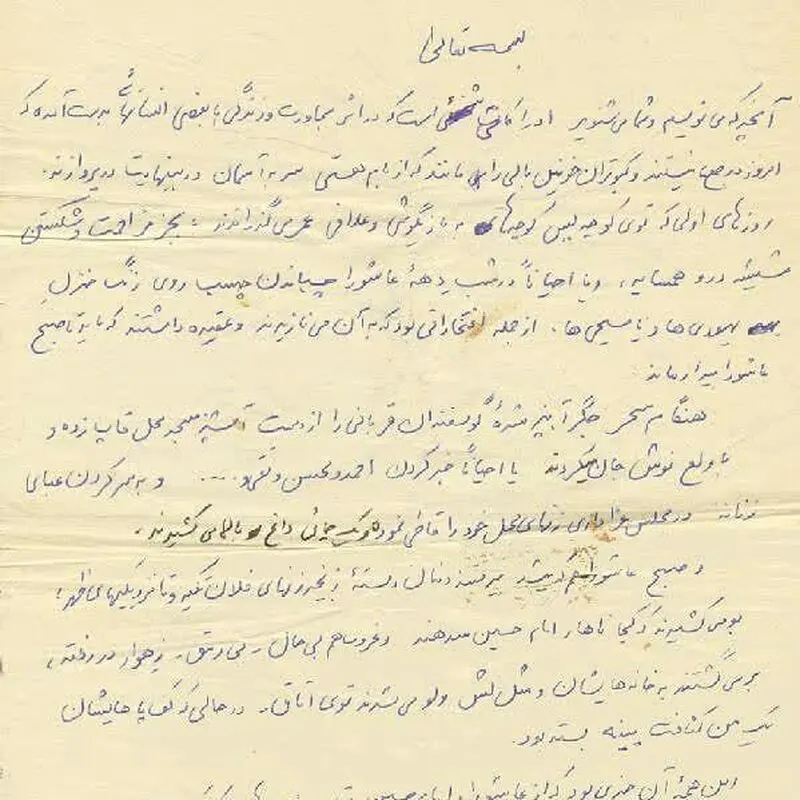 بسمه تعالی
آنچه که می نویسم و شما می شنوید ادراکاتی است که در اثر مجاورت و زندگی با بعضی انسانهائی بدست آمده که
امروز در جمع ما نیستند و کبوتران خونین بالی را مانند که از بام هستی سر به آسمان در بینهایت در پروازند.
روزهای اولی که توی کوچه پس کوچه های به بازیگوشی و علافی عمر می گذراندند؛ بجز مزاحمت و شکستن
شیشه در و همسایه، و یا احیاناً در شب دههٔ عاشورا چسباندن چسب روی زنگ منزلِ
یهودی ها و یا مسیحی ها، از جمله افتخاراتی بود که به آن می نازیدند و عقیده داشتند که باید تا صبح
عاشورا بیدار ماند.
هنگام سحر جگر آب پز شدهٔ گوسفندان قربانی را از دست آشپز مسجد محل قاپ زده و
با ولع نوش جان میکردند یا احیاناً خبر کردن احمد و محسن و تقی و .... و به سر کردن عبای
زنانه در مجلس عزاداری زنهای محل خود را قاطی نموده و یک چائی داغ بالا می کشیدند.
و صبح عاشورا میرفتند دنبال دستهٔ زنجیرزنهای فلان تکیه و تا نزدیکیهای ظهر؛
بو می کشیدند که کجا ناهار امام حسین میدهند و غروب هم بی حال، بی رمق، زهوار در رفته،
برمی گشتند به خانه هایشان و مثل لش ولو می شدند توی اتاق، در حالی که کف پاهایشان
یک من کثافت پینه بسته بود.
این همهٔ آن چیزی بود که از عاشورا و امام حسین